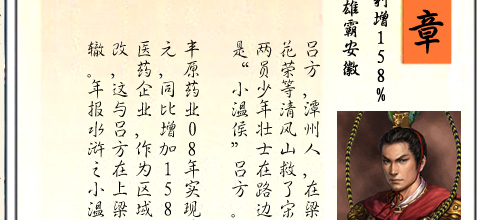 章
利增158%
雄霸安徽
吕方，潭州人，在梁
花荣等清风山救了宋
两员少年壮士在路边
是“小温侯”吕方。
丰原药业08年实现
元，同比增加158
医药企业，作为区域
改，这与吕方在上梁
辙。年报水浒之小温